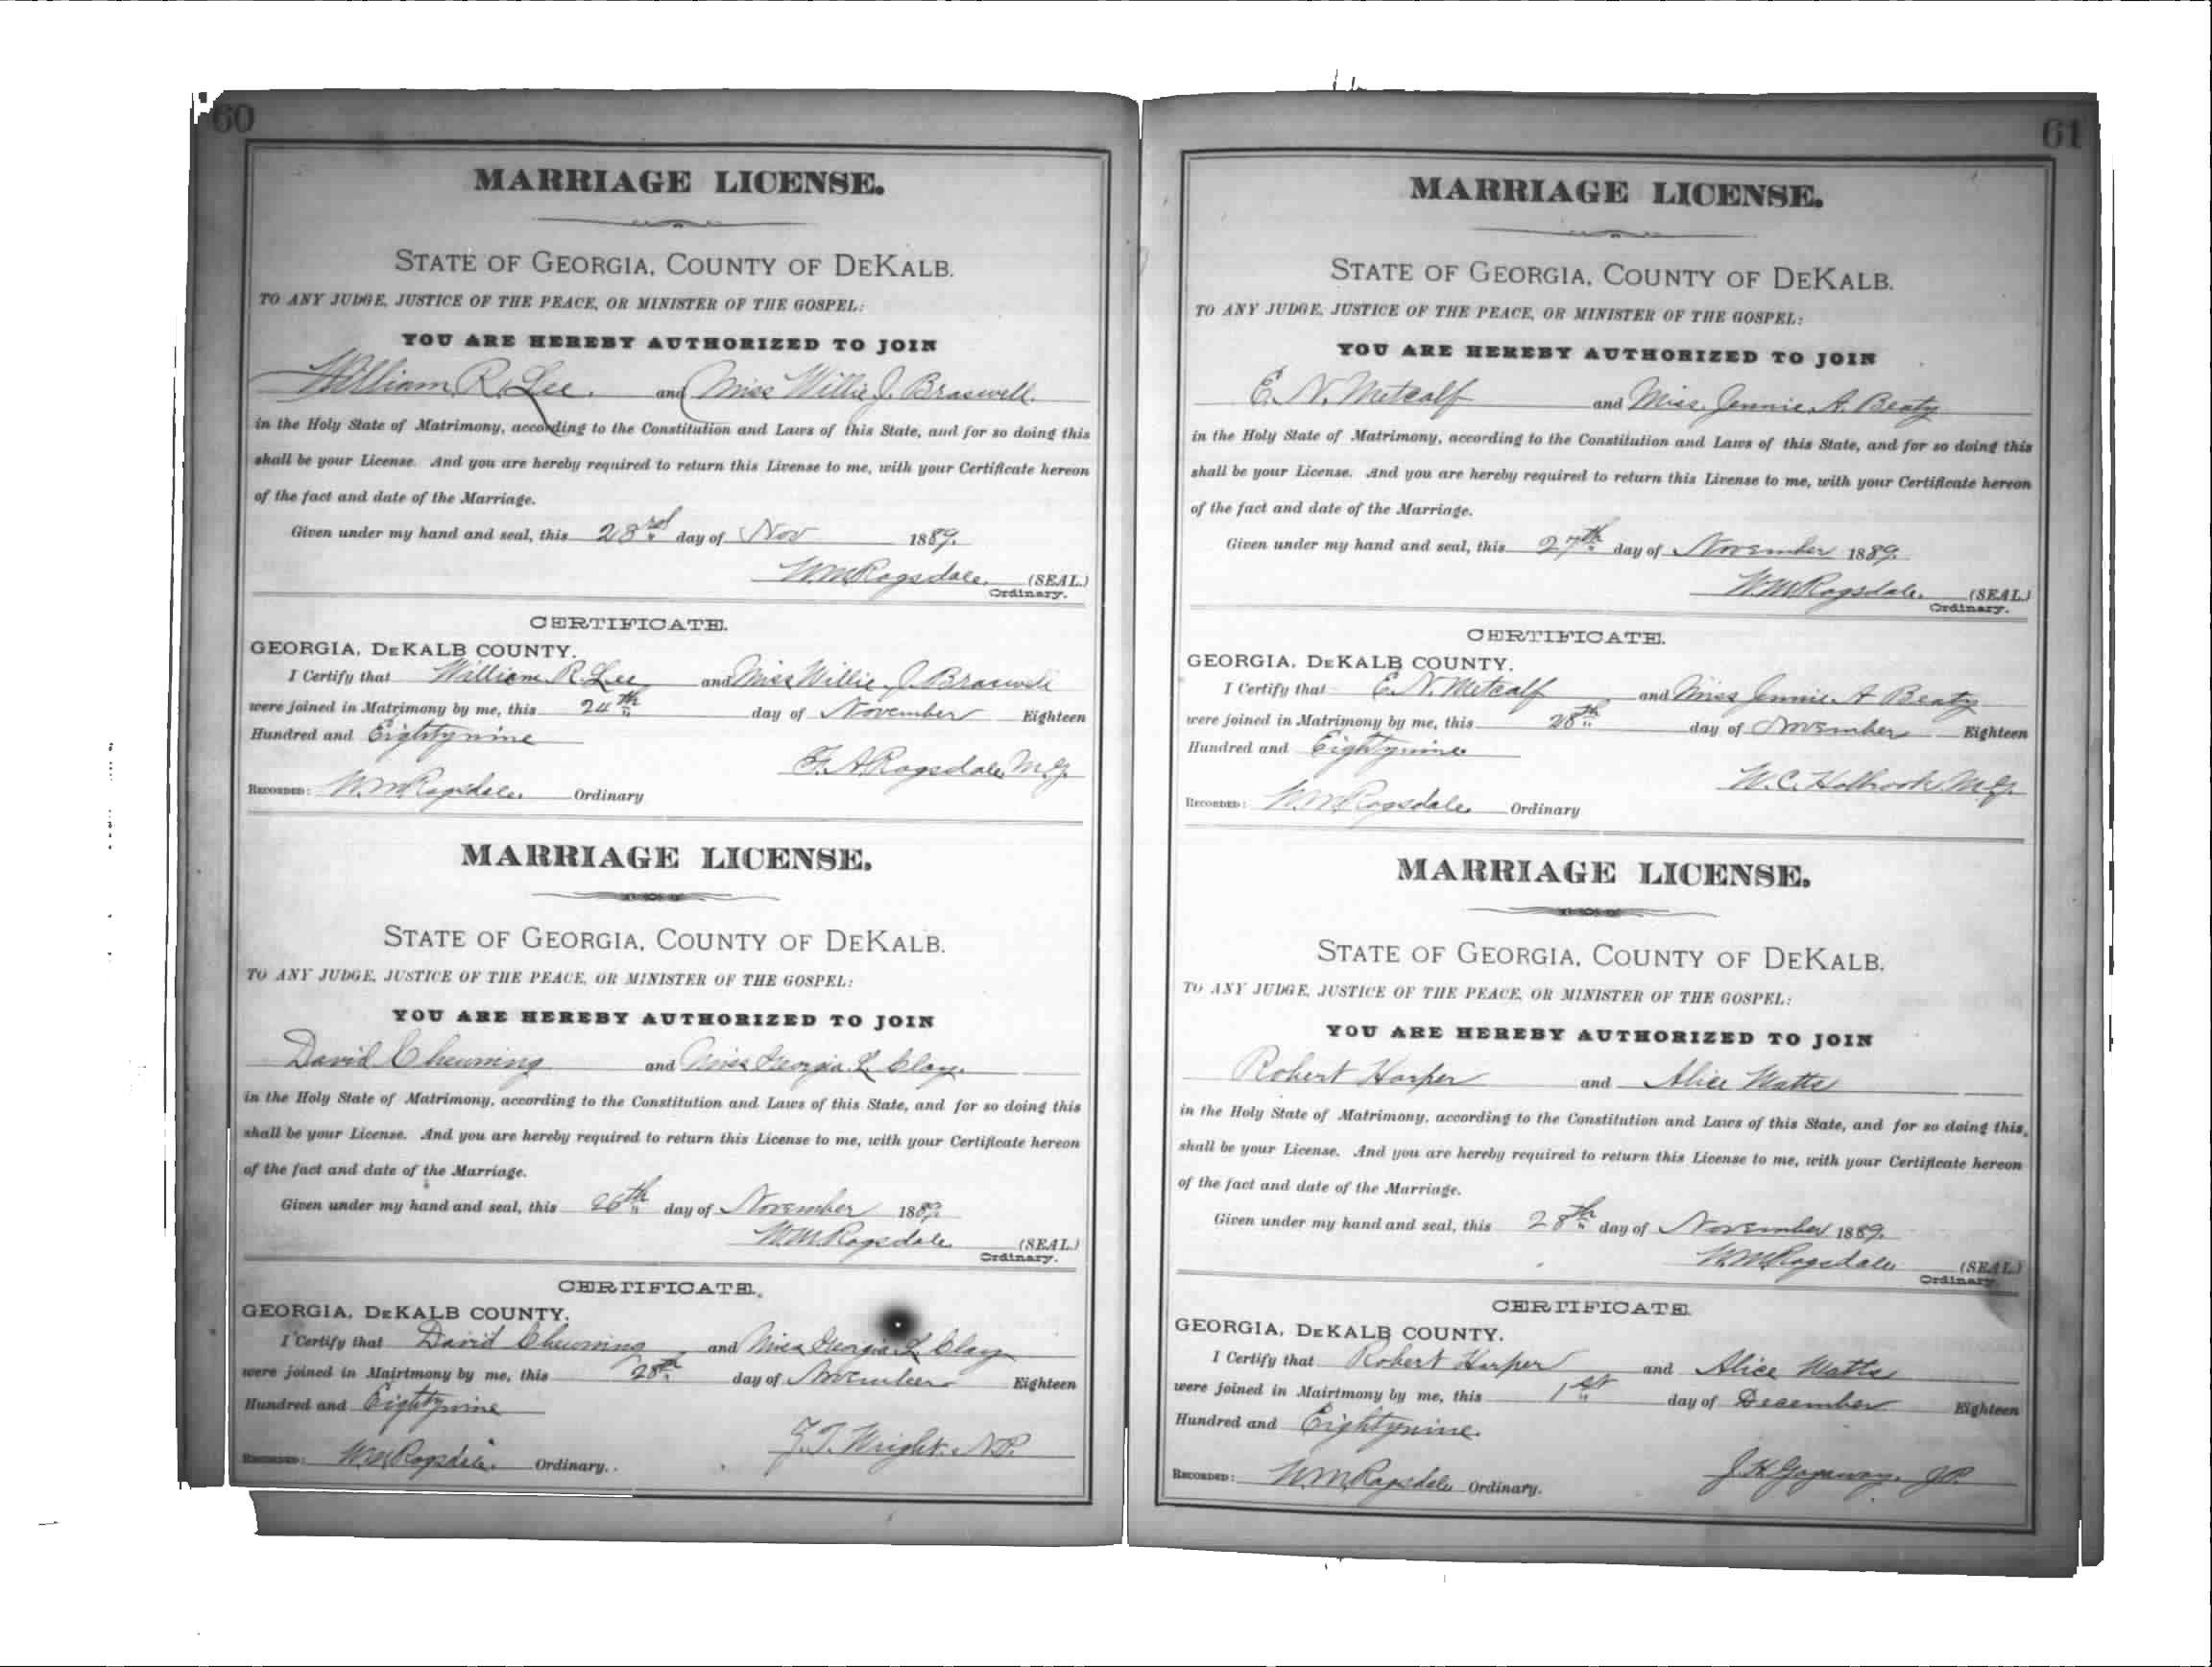 60
MARRIAGE LICENSE.
STATE OF GEORGIA, COUNTY OF DEKALB.
TO ANY JUDGE, JUSTICE OF THE PEACE, OR MINISTER OF THE GOSPEL:
YOU ARE HEREBY AUTHORIZED TO JOIN
William R. Lee. and Miss Willie J. Braswell.
in the Holy State of Matrimony, according to the Constitution and Laws of this State, and for so doing this
shall be your License. And you are hereby required to return this License to me, with your Certificate hereon
of the fact and date of the Marriage.
Given under my hand and seal, this 23rd day of Nov 1889.
W.M. Ragsdale. (SEAL.)
Ordinary.
CERTIFICATE.
GEORGIA, DEKALB COUNTY.
I Certify that William R. Lee and Miss Willie J. Braswell
were joined in Matrimony by me, this 24th day of November Eighteen
Hundred and Eightynine
F. A. Ragsdale, M.G.
RECORDED: W.M. Ragsdale. Ordinary
MARRIAGE LICENSE.
STATE OF GEORGIA, COUNTY OF DEKALB.
TO ANY JUDGE, JUSTICE OF THE PEACE, OR MINISTER OF THE GOSPEL:
YOU ARE HEREBY AUTHORIZED TO JOIN
David Chewning and Miss Georgia L. Clay.
in the Holy State of Matrimony, according to the Constitution and Laws of this State, and for so doing this
shall be your License. And you are hereby required to return this License to me, with your Certificate hereon
of the fact and date of the Marriage.
Given under my hand and seal, this 26th day of November 1889.
W.M. Ragsdale (SEAL.)
Ordinary.
CERTIFICATE.
GEORGIA, DEKALB COUNTY.
I Certify that David Chewning and Miss Georgia L Clay
were joined in Mairtmony by me, this 28th day of November Eighteen
Hundred and Eightynine
Z.T. Wright. N.P.
RECORDED: W.M. Ragsdale. Ordinary.
61
MARRIAGE LICENSE.
STATE OF GEORGIA, COUNTY OF DEKALB.
TO ANY JUDGE, JUSTICE OF THE PEACE, OR MINISTER OF THE GOSPEL:
YOU ARE HEREBY AUTHORIZED TO JOIN
E. N. Metcalf and Miss. Jennie A. Beaty
in the Holy State of Matrimony, according to the Constitution and Laws of this State, and for so doing this
shall be your License. And you are hereby required to return this License to me, with your Certificate hereon
of the fact and date of the Marriage.
Given under my hand and seal, this 27th day of November 1889.
W.M. Ragsdale. (SEAL.)
Ordinary.
CERTIFICATE.
GEORGIA, DEKALB COUNTY.
I Certify that E. N. Metcalf and Miss Jennie A Beaty
were joined in Matrimony by me, this 28th day of November Eighteen
Hundred and Eightynine
W. C. Holbrook M.G.
RECORDED: W.M. Ragsdale. Ordinary
MARRIAGE LICENSE.
STATE OF GEORGIA, COUNTY OF DEKALB.
TO ANY JUDGE, JUSTICE OF THE PEACE, OR MINISTER OF THE GOSPEL:
YOU ARE HEREBY AUTHORIZED TO JOIN
Robert Harper and Alice Watts
in the Holy State of Matrimony, according to the Constitution and Laws of this State, and for so doing this,
shall be your License. And you are hereby required to return this License to me, with your Certificate hereon
of the fact and date of the Marriage.
Given under my hand and seal, this 28th day of November 1889.
W.M. Ragsdale (SEAL.)
Ordinary.
CERTIFICATE.
GEORGIA, DEKALB COUNTY.
I Certify that Robert Harper and Alice Watts
were joined in Mairtmony by me, this 1st day of December Eighteen
Hundred and Eightynine.
J. H. J.P.
RECORDED: W.M. Ragsdale Ordinary.